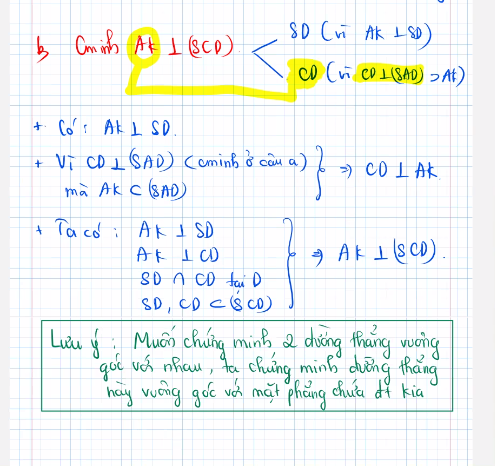 b Cminh AK ⊥ (SCD)
SD (vì AK ⊥ SD)
CD (vì CD ⊥ (SAD) ⊃ AK)
+ Có : AK ⊥ SD.
+ Vì CD ⊥ (SAD) (cminh ở câu a)
mà AK ⊂ (SAD)
} ⇒ CD ⊥ AK
+ Ta có : AK ⊥ SD
AK ⊥ CD
SD ∩ CD tại D
SD, CD ⊂ (SCD)
} ⇒ AK ⊥ (SCD).
Lưu ý : Muốn chứng minh 2 đường thẳng vuông
góc với nhau, ta chứng minh đường thẳng
này vuông góc với mặt phẳng chứa đt kia